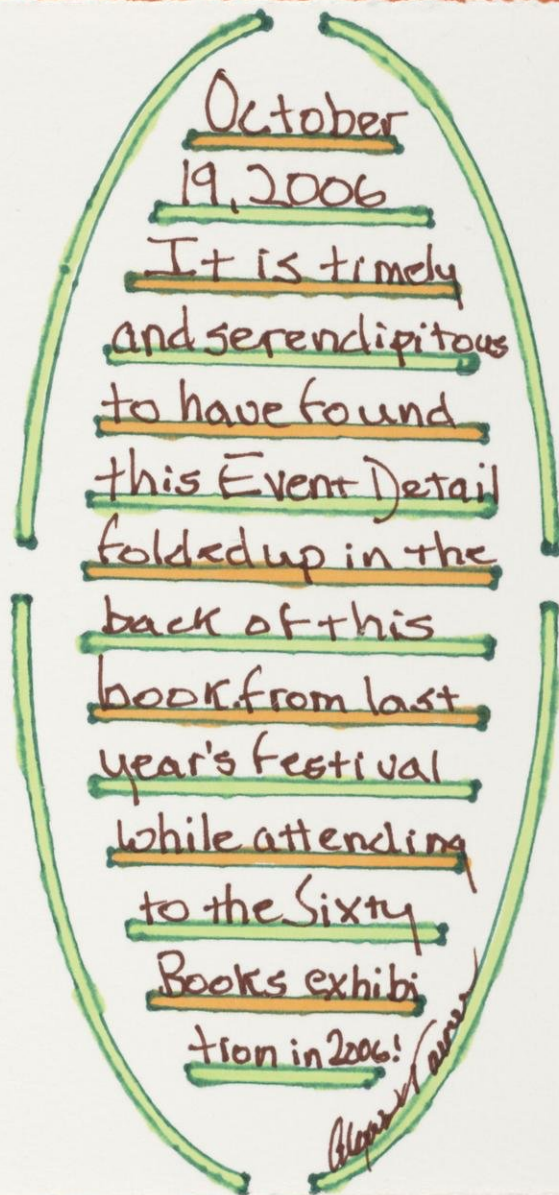 October
19, 2006
It is timely
and serendipitous
to have found
this Event Detail
folded up in the
back of this
book from last
year's festival
while attending
to the Sixty
Books exhibi
tion in 2006!